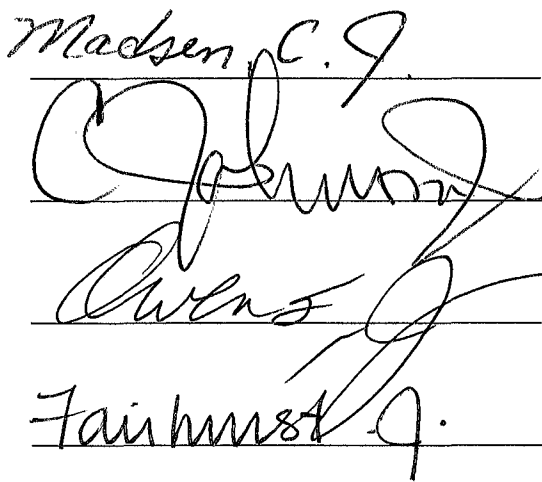 Madsen, C. J.
C Johnson J
Owens J
Fairhurst J.